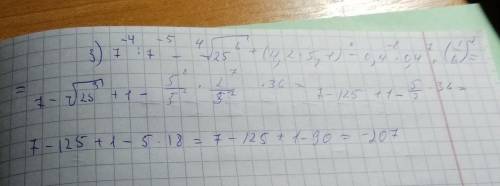 3) 7^-4 : 7^-5 - ⁴√25^6 + (4,2 : 5,1)^0 - 0,4^-8 · 0,4^7 · (1/6)^-2 =
= 7 - √25^3 + 1 - · 36 = 7 - 125 + 1 - 5/2 · 36 =
7 - 125 + 1 - 5 · 18 = 7 - 125 + 1 - 90 = -207